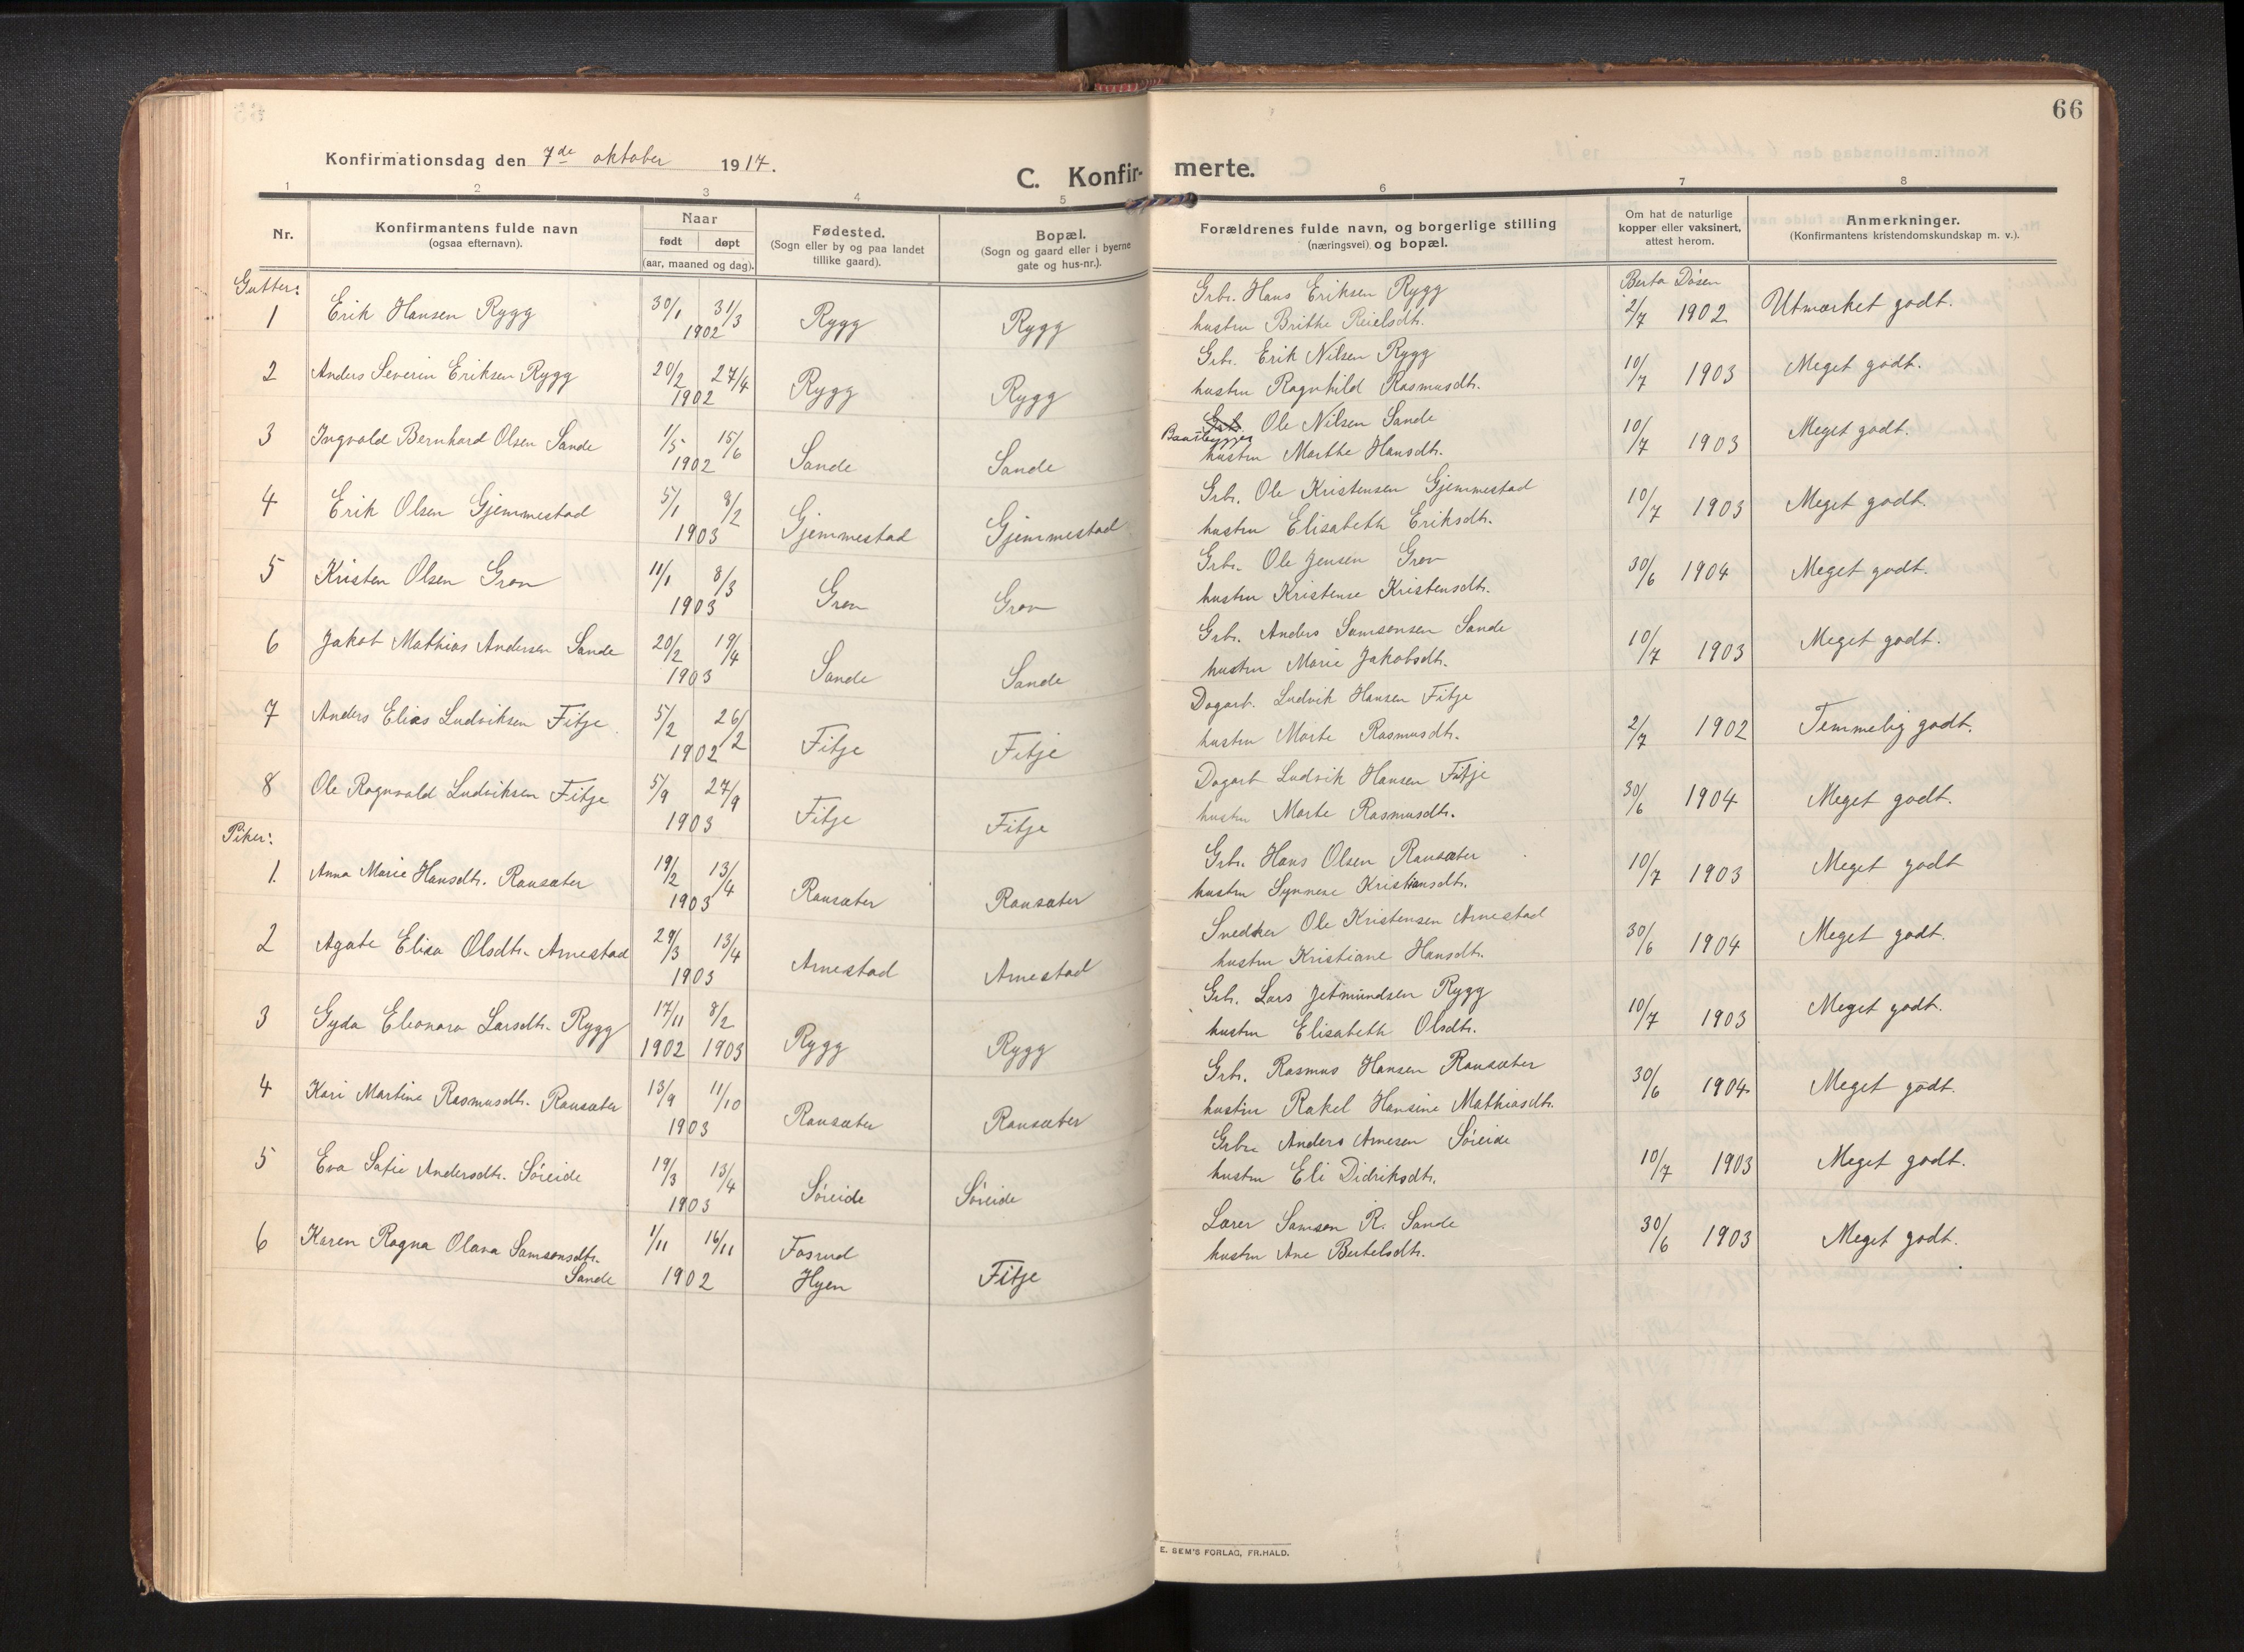 66
Konfirmationsdag den 7de oktober 1917.
C. Konfir-
merte.
1 2 3 4 5 6 7 8
Nr.
Konfirmantens fulde navn
(ogsaa efternavn).
Naar
født døpt
(aar, maaned og dag).
Fødested.
(Sogn eller by og paa landet
tillike gaard).
Bopæl.
(Sogn og gaard eller i byerne
gate og hus-nr.).
Forældrenes fulde navn, og borgerlige stilling
(næringsvei) og bopæl.
Om hat de naturlige
kopper eller vaksinert,
attest herom.
Anmerkninger.
(Konfirmantens kristendomskundskap m. v.).
Gutter:
1 Erik Hansen Rygg 30/1 31/3 1902 Rygg Rygg
Grbr. Hans Eriksen Rygg
hustru Brithe Reielsdtr.
Berta Døsen
2/7 1902 Utmærket godt.
2 Anders Severin Eriksen Rygg 20/2 27/4 1902 Rygg Rygg
Grbr. Erik Nilsen Rygg
hustru Ragnhild Rasmusdtr.
10/7 1903 Meget godt.
3 Ingvald Bernhard Olsen Sande 1/5 15/6 1902 Sande Sande
Grb. Ole Nilsen Sande
Baatbygger
hustru Marthe Hansdtr.
10/7 1903 Meget godt.
4 Erik Olsen Gjemmestad 5/1 8/2 1903 Gjemmestad Gjemmestad
Grbr. Ole Kristensen Gjemmestad
hustru Elisabeth Eriksdtr.
10/7 1903 Meget godt.
5 Kristen Olsen Grov 11/1 8/3 1903 Grov Grov
Grbr. Ole Jensen Grov
hustru Kristense Kristensdtr.
30/6 1904 Meget godt.
6 Jakob Mathias Andersen Sande 20/2 19/4 1903 Sande Sande
Grbr. Anders Samsonsen Sande
hustru Marie Jakobsdtr.
10/7 1903 Meget godt.
7 Anders Elias Ludviksen Fitje 5/2 26/2 1902 Fitje Fitje
Dagarb. Ludvik Hansen Fitje
hustru Marte Rasmusdtr.
2/7 1902 Temmelig godt.
8 Ole Ragnvald Ludviksen Fitje 5/9 27/9 1903 Fitje Fitje
Dagarb Ludvik Hansen Fitje
hustru Marte Rasmusdtr.
30/6 1904 Meget godt.
Piker:
1. Anna Marie Hansdtr. Ransæter 19/2 13/4 1903 Ransæter Ransæter
Grbr. Hans Olsen Ransæter
hustru Synneve Kristiansdtr.
10/7 1903 Meget godt
2 Agate Elisa Olsdtr. Arnestad 29/3 13/4 1903 Arnestad Arnestad
Snedker Ole Kristensen Arnestad
hustru Kristiane Hansdtr.
30/6 1904 Meget godt.
3 Gyda Eleonora Larsdtr. Rygg 17/11 8/2 1902 1903 Rygg Rygg
Grbr. Lars Jetmundsen Rygg
hustru Elisabeth Olsdtr.
10/7 1903 Meget godt.
4 Kari Martine Rasmusdtr. Ransæter 13/9 11/10 1903 Ransæter Ransæter
Grbr. Rasmus Hansen Ransæter
hustru Rakel Hansine Mathiasdtr.
30/6 1904 Meget godt.
5 Eva Sofie Andersdtr. Søreide 19/3 13/4 1903 Søreide Søreide
Grbr. Anders Arnesen Søreide
hustru Eli Didriksdtr.
10/7 1903 Meget godt.
6 Karen Ragna Olava Samsonsdtr. 1/11 16/11 Fosrud
Sande 1902 Hyen Fitje
Lærer Samson R. Sande
hustru Ane Bertelsdtr.
30/6 1903 Meget godt.
E. SEM'S FORLAG, FR.HALD.